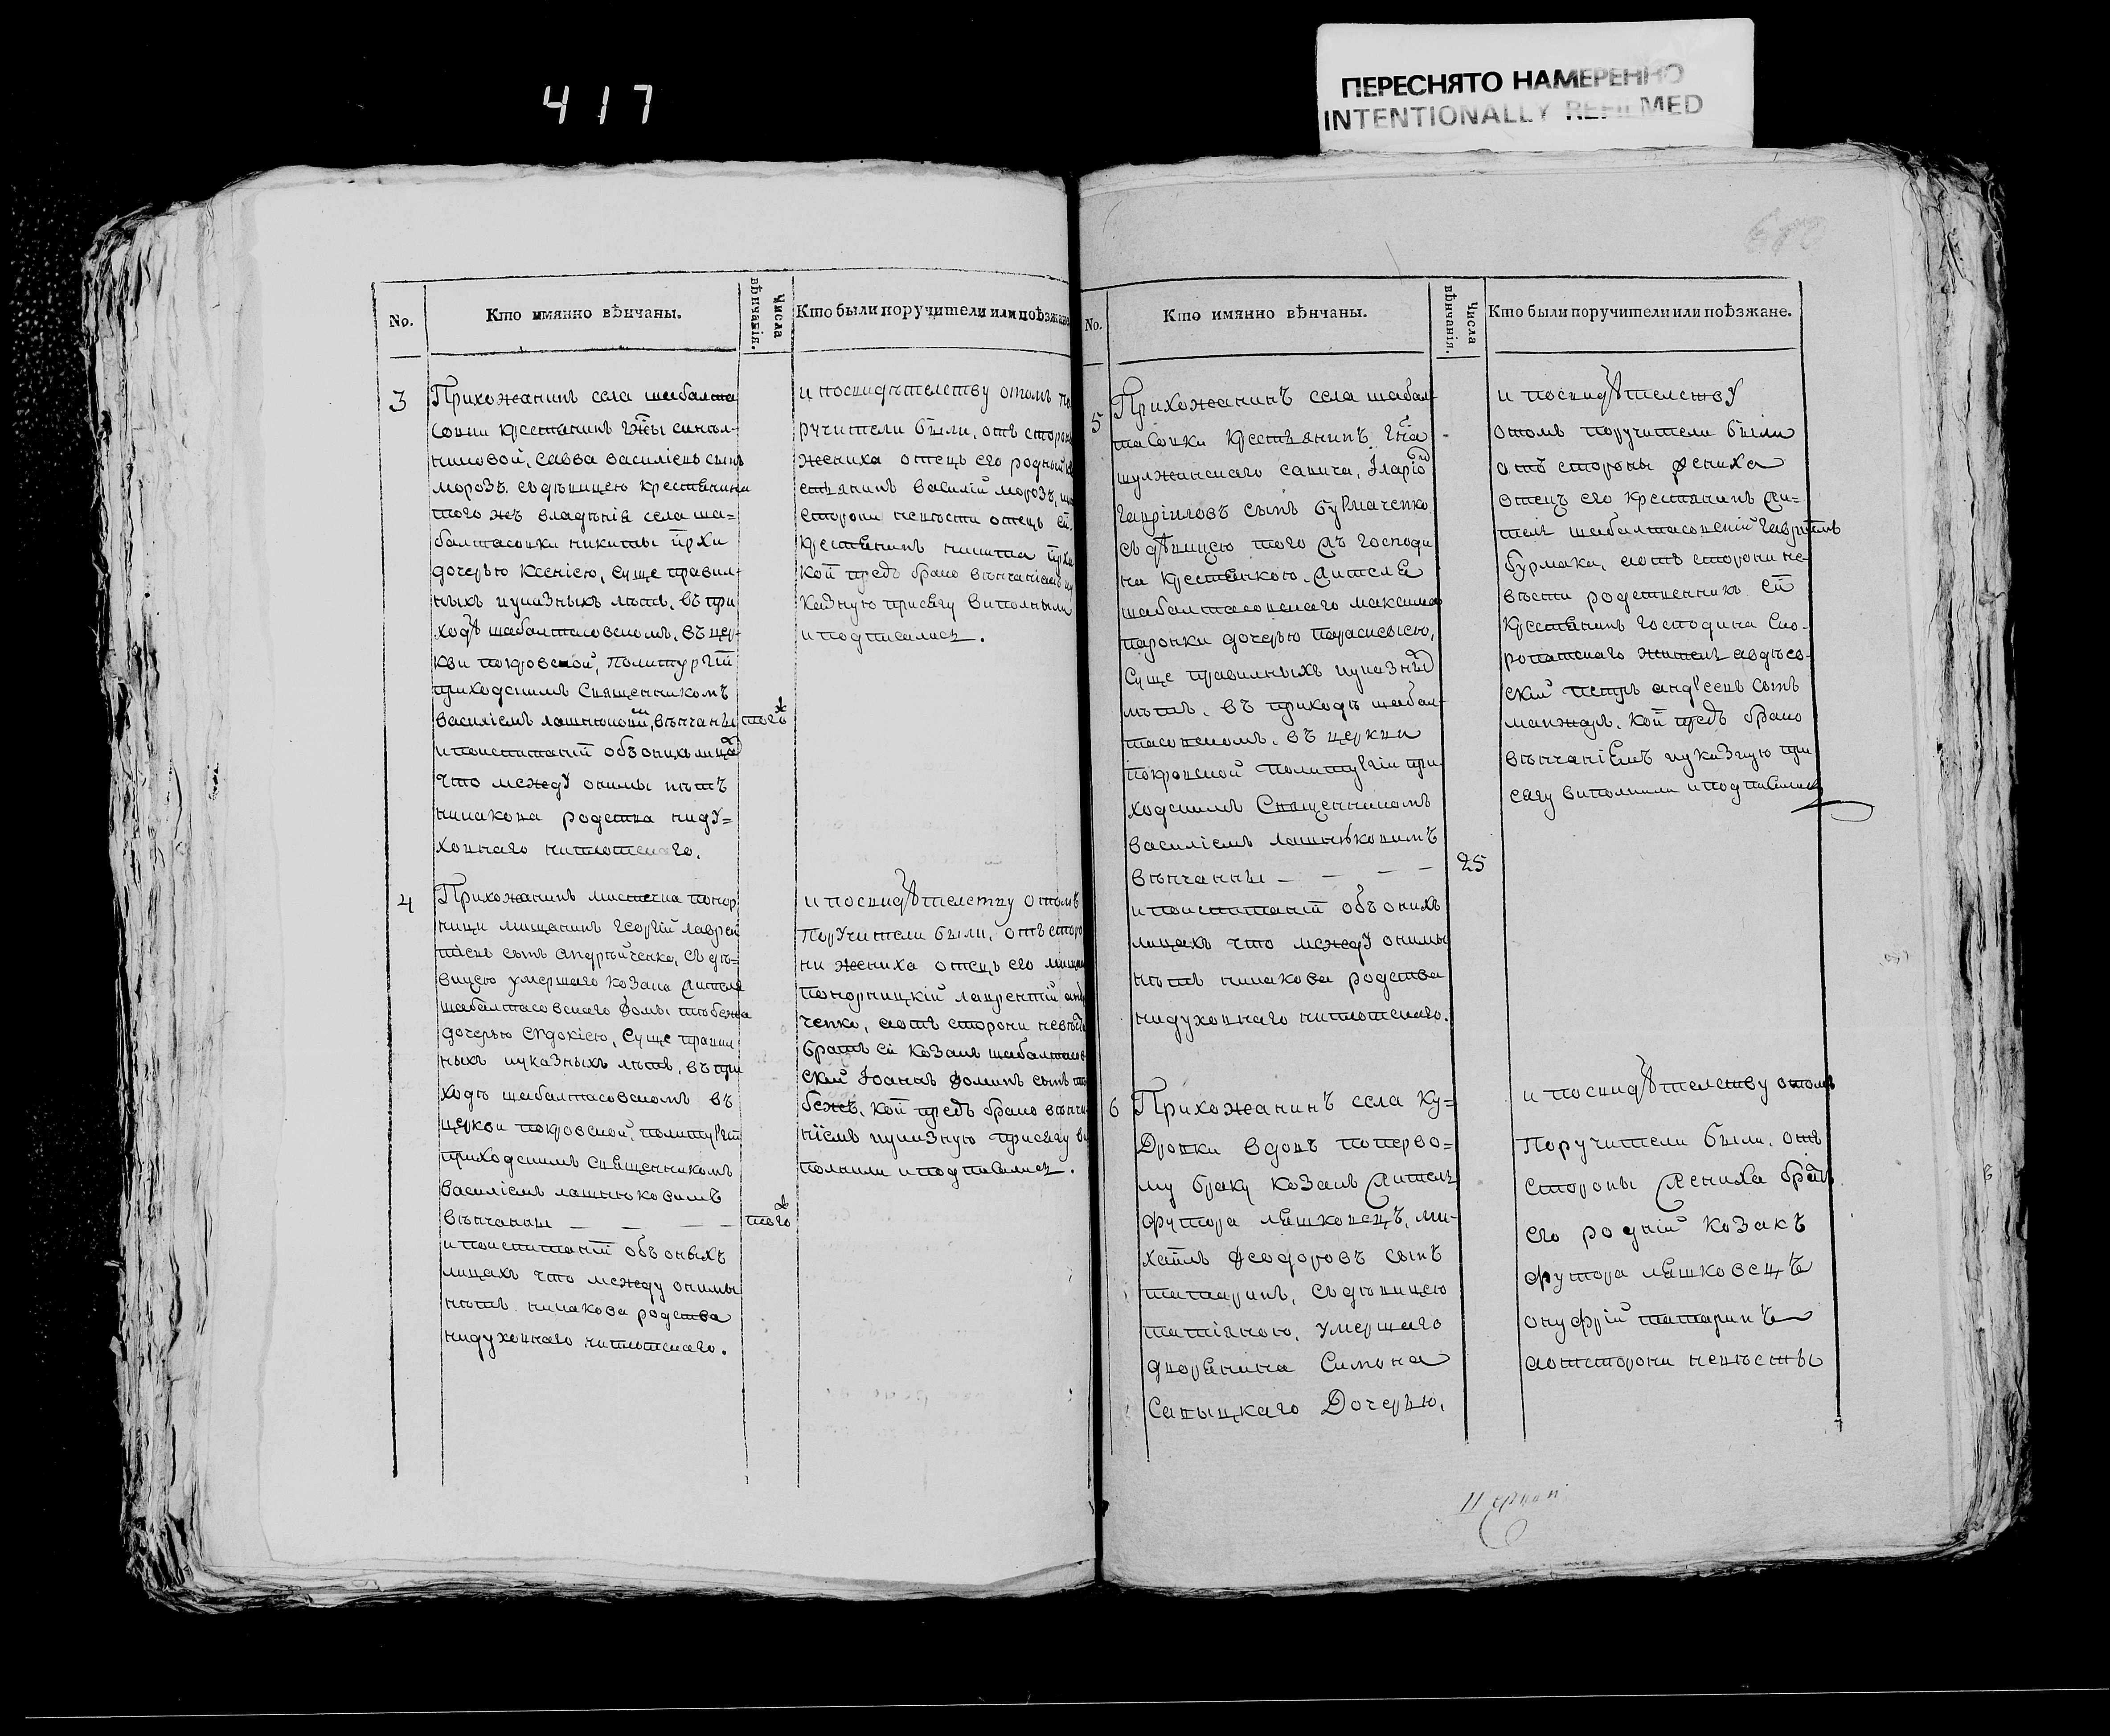 417
ПЕРЕСНЯТО НАМЕРЕННО
INTENTIONALLY REFILMED
No.
Кто имянно вѣнчаны.
Числа вѣнчанія.
Кто были поручители или поѣзжане
3
Прихожанинъ села шабалта
совки крестянинъ гжи синел-
никовой, савва василіевъ сынъ
морозъ. съ дѣвицею крестянина
того жъ владѣнія села ша=
балтасовки никиты
дочерью ксеніею, суще правил-
ныхъ иуказныхъ лѣтъ, въ при
ходѣ шабалтасовскомъ, въ цер-
кви покровской, политургіи
приходскимъ священникомъ
василіемъ лашнюковимъ, вѣнчаны
тогож
ипоиспитаніи объонихъ лицах
что между оними нѣтъ
никакова родства ниду=
ховнаго ниплотскаго.
и посвидѣтелству отомъ по
ручители были, отъ сторон
жениха отецъ его родный кр
естянинъ василій морозъ,
сторони невѣсти отецъ ей
крестянинъ никита
кои предъ брако вѣнчаніемъ
казную присягу виполныли
иподписалися.
4
Прихожанинъ мистечка понор
ници мищанинъ георгій лаврен
тіевъ сынъ андрѣйченко, съ дѣ=
вицею умершаго козака жителя
шабалтасовскаго фомы
дочерью евдокіею, суще правил
ныхъ иуказныхъ лѣтъ, въ при
ходѣ шабалтасовскомъ въ
церкви покровской, политургіи
приходскимъ священникомъ
василіемъ лашнюковимъ
вѣнчанны — — — —
тогож
ипоиспитаніи объ оныхъ
лицахъ что между оними
нѣтъ никакова родства
нидуховнаго ниплотскаго.
и посвидѣтелству отомъ
поручители были, отъ сторо
ни жениха отецъ его мищан
понорницкій лаврентій анд
ченко, аотъ сторони невѣст
братъ ей козакъ шабалтасов
скій іоаннъ фоминъ сынъ
кой предъ брако вѣнча
ніемъ иуказную присягу ви
полнили иподписалися.
No.
Кто имянно вѣнчаны.
Числа вѣнчанія.
Кто были поручители или поѣзжане.
5
Прихожанинъ села шабал-
тасовки крестьянинъ гна
шулжинскаго савича, Іларіо
гавріиловъ сынъ бурмаченко
съ дѣвицею того ж господи
на крестянкою жителя
шабалтасовскаго максима
паронки дочерью параскевіею,
суще правилныхъ иуказных
лѣтъ, въ приходѣ шабал-
тасовскомъ, въ церкви
покровской политургіи при
ходскимъ священникомъ
василіемъ лашнюковимъ
вѣнчанны — — — —
25
ипоиспитаніи объонихъ
лицахъ что между оними
нѣтъ никакова родства
нидуховнаго ниплотскаго.
и посвидѣтелству
отомъ поручители были
отъ стороны жениха
отецъ его крестянинъ жи=
тель шабалтасовскій гавріилъ
бурмака, аотъ сторони не-
вѣсти родственникъ ей
крестянинъ господина ско-
ропатскаго житель авдѣев-
скій петръ андреевъ сынъ
манжоля. кои предъ брако
вѣнчаніемъ иуказную при
сягу виполнили иподписалися
6
Прихожанинъ села ку=
дровки вдовъ поперво=
му браку козакъ житель
футора лѣшковецъ, ми-
хаилъ феодоровъ сынъ
татаринъ, съ дѣвицею
татіяною, умершаго
дворянина симона
савыцкаго дочерью,
и посвидѣтелству отомъ
поручители были, отъ
стороны жениха братъ
его родній козакъ
футора лѣшковецъ
онуфрій татаринъ
аотсторони невѣсты